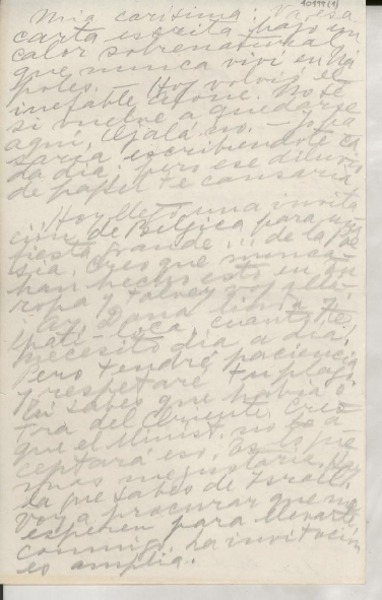 10199 (1)
Mia carísima: Va esa
carta escrita bajo un
calor sobrenatural
que nunca viví en Ná
poles.— Hoy volvió el
inefable Cifone. No sé
si vuelve a quedarse
aquí, Ojalá no. — Yo pa
saría escribiéndote ca
da día, pero ese diluvio
de papel te causaría
Hoy llegó una invita
ción de Bélgica para una
fiesta grande!!! de la poe
sía. Creo que nunca
han hecho esto en Eu
ropa y talvez voy allá.
Ay, Dana linda y
loca, cuanto te
necesito día a día!
Pero tendré paciencia
y respetaré tu plazo.
Tú sabes que había o
tra del Oriente. Creo
que el Minist. no te a
ceptará eso. Es lo que
más me gustaría. Hay
la que sabes de Israel.
Voy a procurar que me
esperen para llevarte
conmigo. La invitación
es amplia.